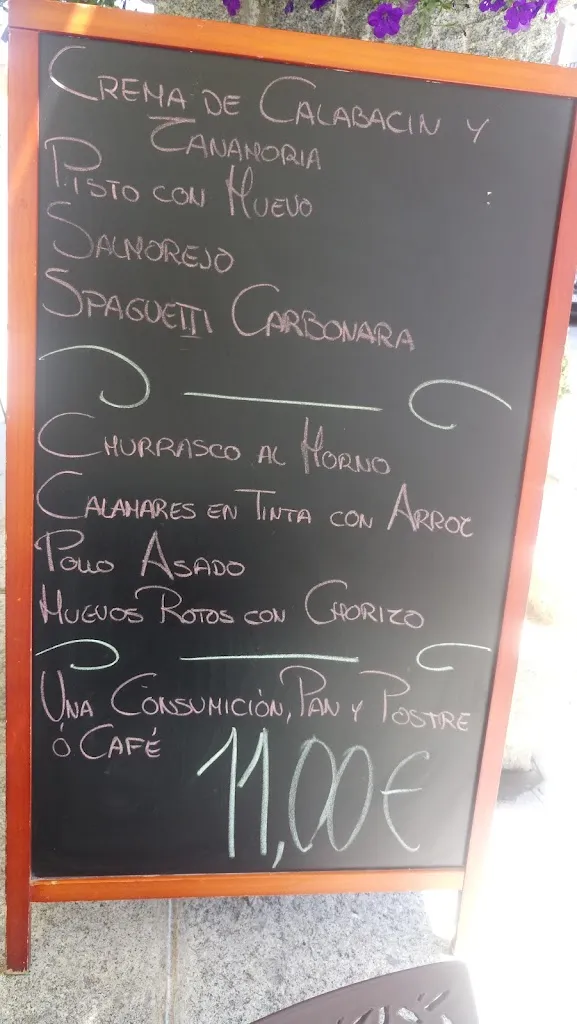 CREMA DE CALABACIN Y
ZANAHORIA
PISTO CON HUEVO
SALMOREJO
SPAGUETTI CARBONARA
CHURRASCO AL HORNO
CALAMARES EN TINTA CON ARROZ
POLLO ASADO
HUEVOS ROTOS CON CHORIZO
UNA CONSUMICIÓN, PAN Y POSTRE
Ó CAFÉ
11,00€